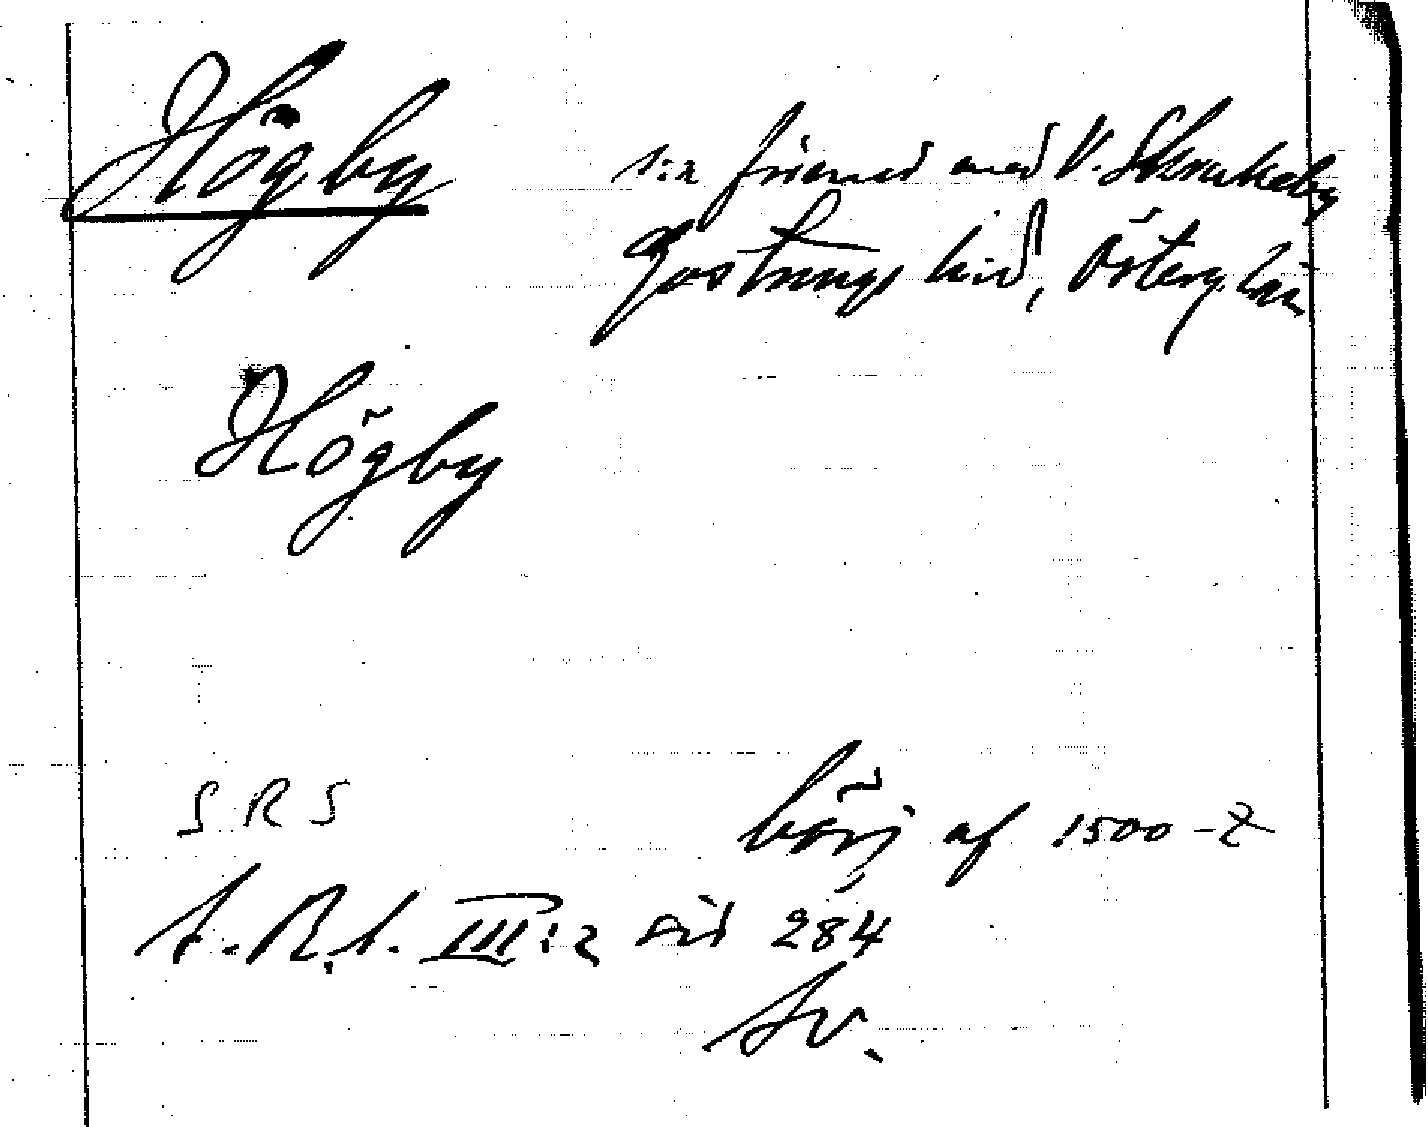 Högby s:n förenad med V. Skrukeby
Göstrings härd, Österg. län
Högby
S R S
börj af 1500-t
S. R. S. III:2 sid 284
Sv.